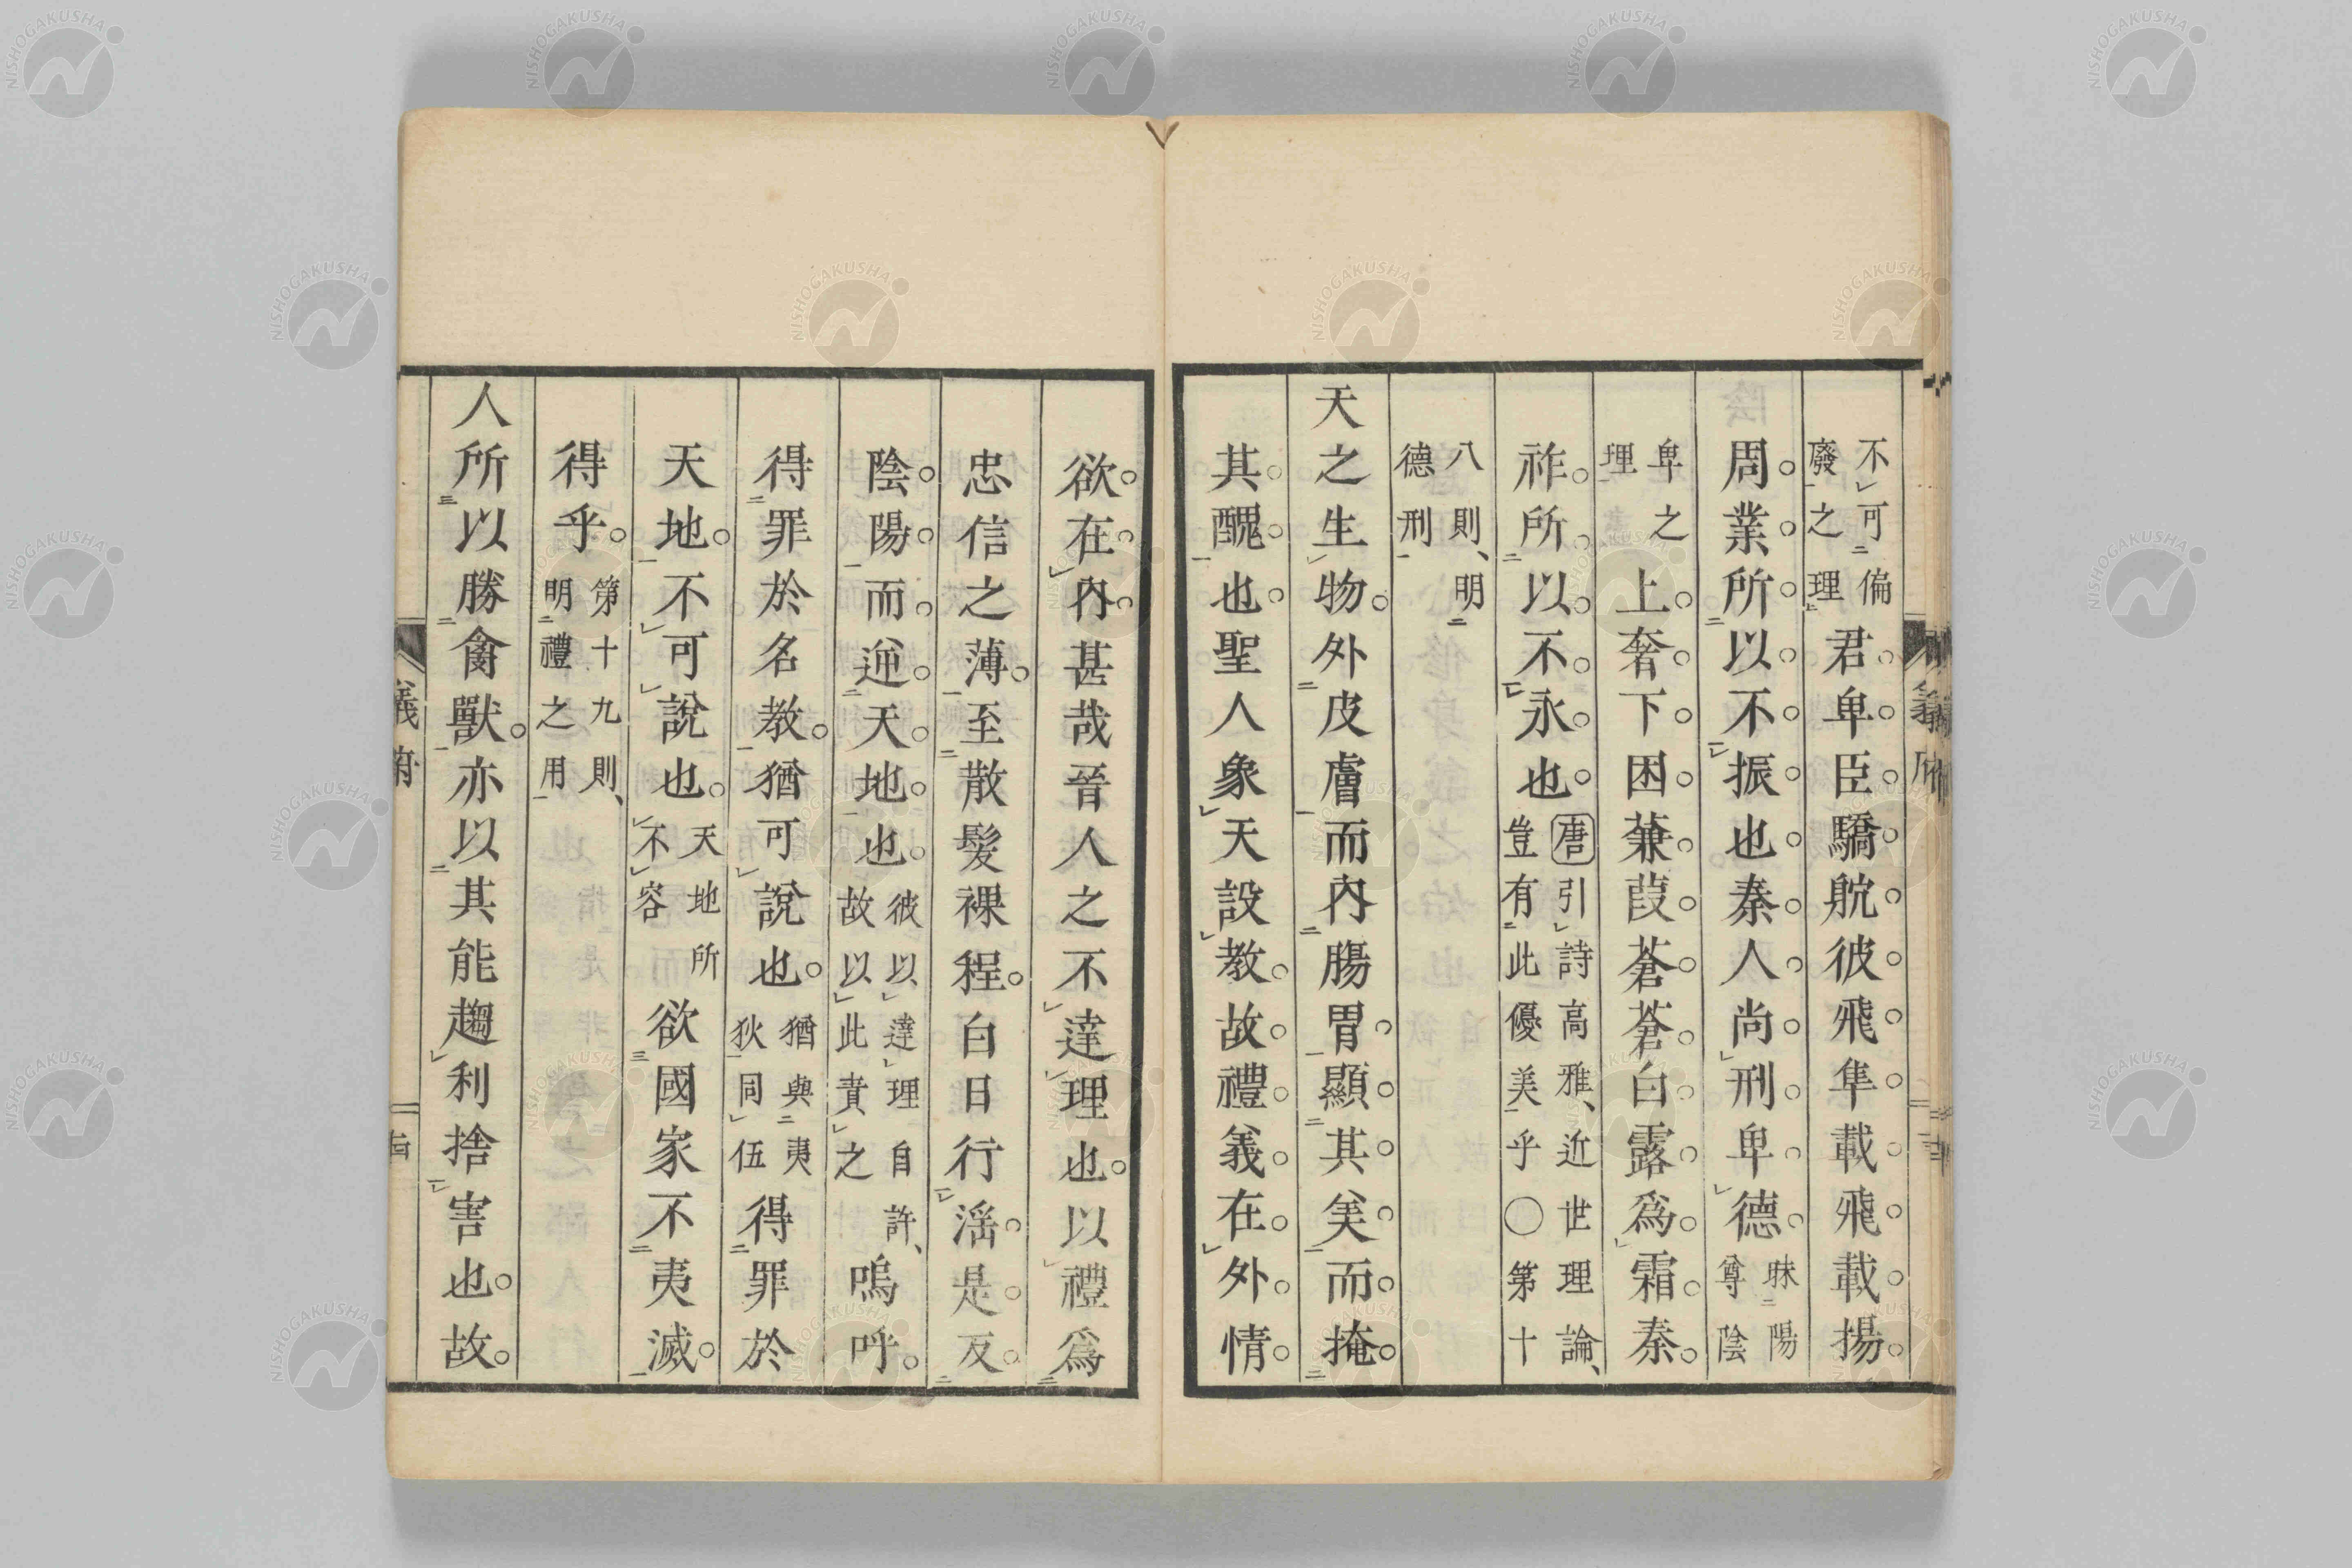 不可偏廢之理君卑臣驕鴥彼飛隼載飛載揚
周業所以不振也秦人尚刑卑德昧陽尊陰
卑之理上奢下困蒹葭蒼蒼白露爲霜秦
祚所以不永也唐引詩高雅、近世理論、豈有此優美乎〇第十
八則、明德刑
天之生物外皮膚而內腸胃顯其美而掩
其醜也聖人象天設教故禮義在外情
欲在內甚哉晉人之不達理也以禮爲
忠信之薄至散髮裸裎白日行淫是反
陰陽而逆天地也彼以達理自許、故以此責之嗚呼
得罪於名教猶可說也猶與夷狄同伍得罪於
天地不可說也天地所不容欲國家不夷滅
得乎第十九則、明禮之用
人所以勝禽獸亦以其能趨利捨害也故
義府
NISHOGAKUSHA